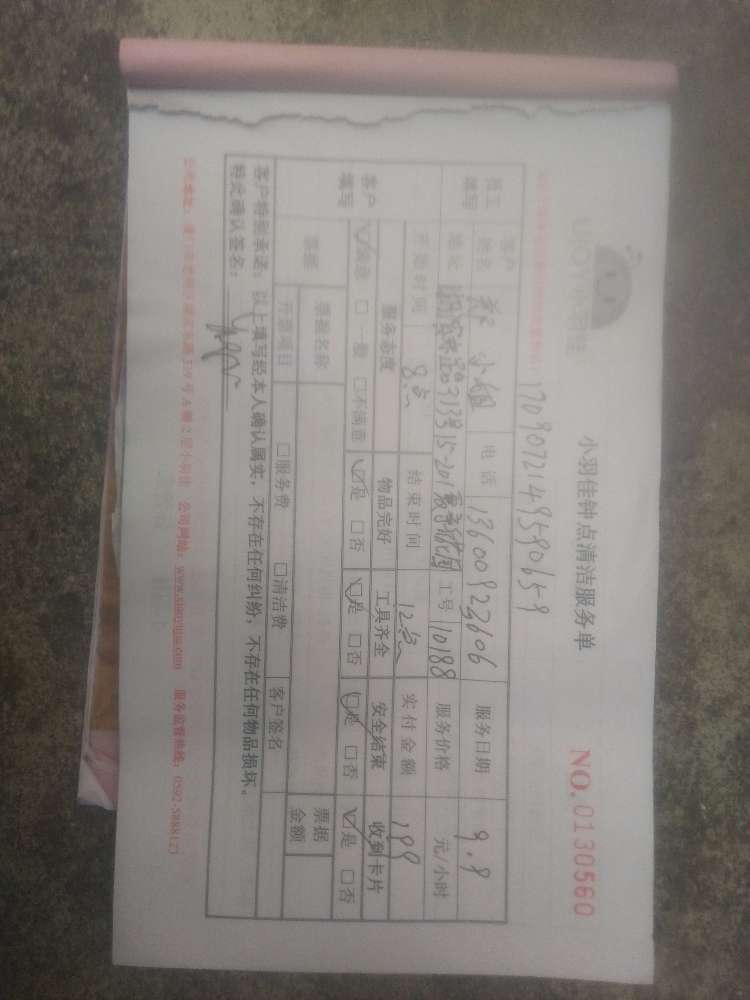 小羽佳钟点清洁服务单
NO.0130560
1709072149590659
员工填写 客户姓名 郑小姐 电话 13600923606 服务日期 9.9
地址 工号 10188 服务价格 元/小时
开始时间 8点 结束时间 12点 实付金额 199
客户填写 服务态度 物品完好 工具齐全 安全结束 收到卡片
☑满意 □一般 □不满意 ☑是 □否 ☑是 □否 ☑是 □否 ☑是 □否
票据 票据名称 票据金额
开票项目 □服务费 □清洁费 客户签名
客户特别承诺：以上填写经本人确认属实，不存在任何纠纷，不存在任何物品损坏。
特此确认签名：
公司地址： 339号A幢2层小羽佳 公司网站：www.xiaoyujia.com 服务监督热线：0592-5888123